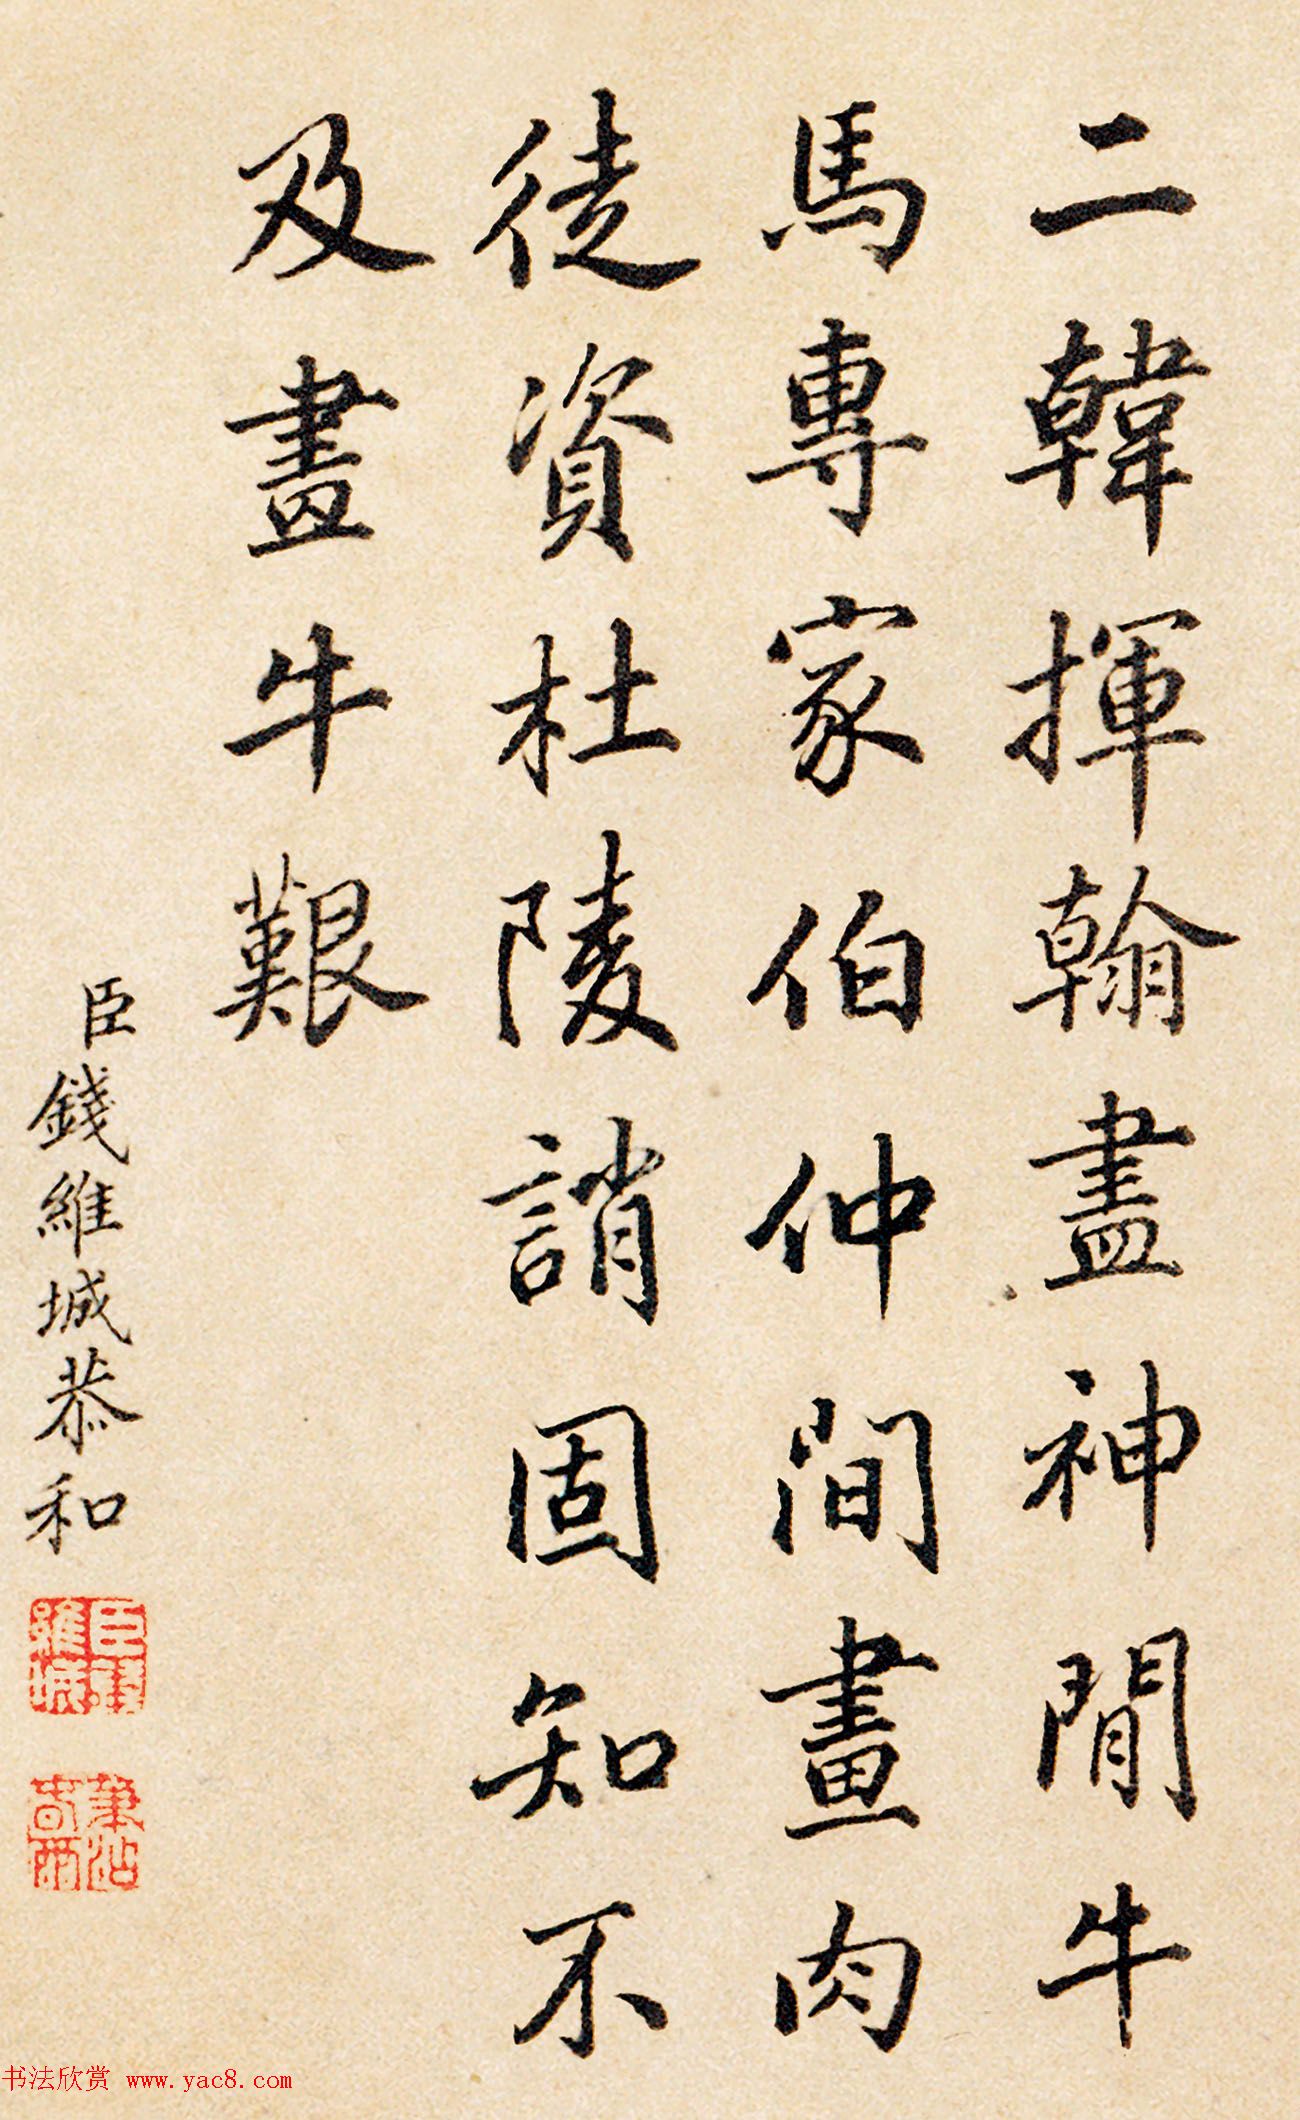 二韓揮翰盡神閒牛
馬專家伯仲間畫肉
徒資杜陵誚固知不
及畫牛艱
臣錢維城恭和
臣錢維城
筆沾春雨
书法欣赏 www.yac8.com